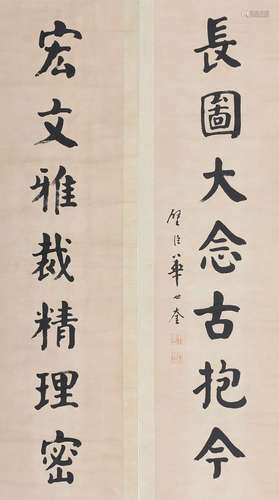 長圖大念古抱今
璧臣華世奎
宏文雅裁精理密